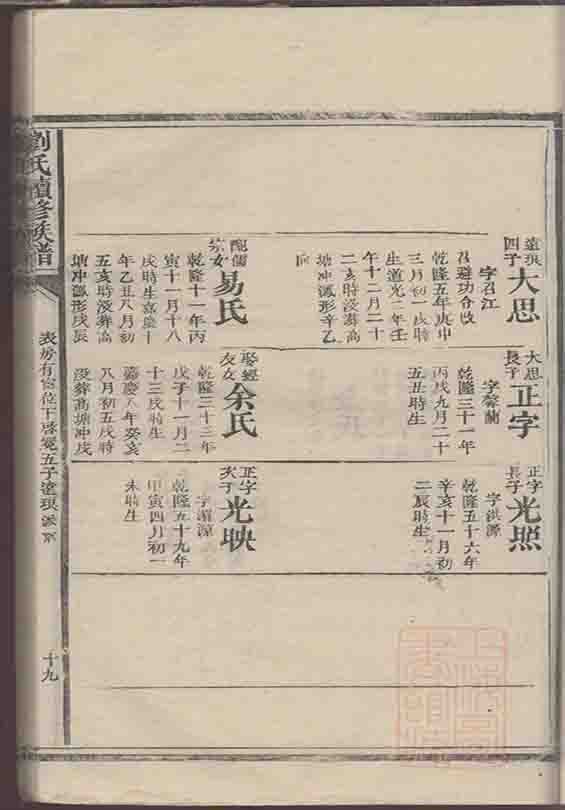 劉氏續修族譜
遠琪四子
大思
字召江
召避功令改
乾隆五年庚申
三月初一戌時
生道光二年壬
午十二月二十
二亥時沒葬高
塘冲瓢形辛乙
向
配儒宗女
易氏
乾隆十一年丙
寅十一月十八
戌時生嘉慶十
年乙丑八月初
五亥時沒葬高
塘冲瓢形戌辰
大思長子
正字
字聲蘭
乾隆三十一年
丙戌九月二十
五丑時生
娶經友女
余氏
乾隆三十三年
戊子十一月二
十三戌時生
嘉慶八年癸亥
八月初五戌時
沒葬高塘冲戌
正字長子
光照
字洪源
乾隆五十六年
辛亥十一月初
二辰時生
正字次子
光映
字湄源
乾隆五十九年
甲寅四月初一
未時生
十九